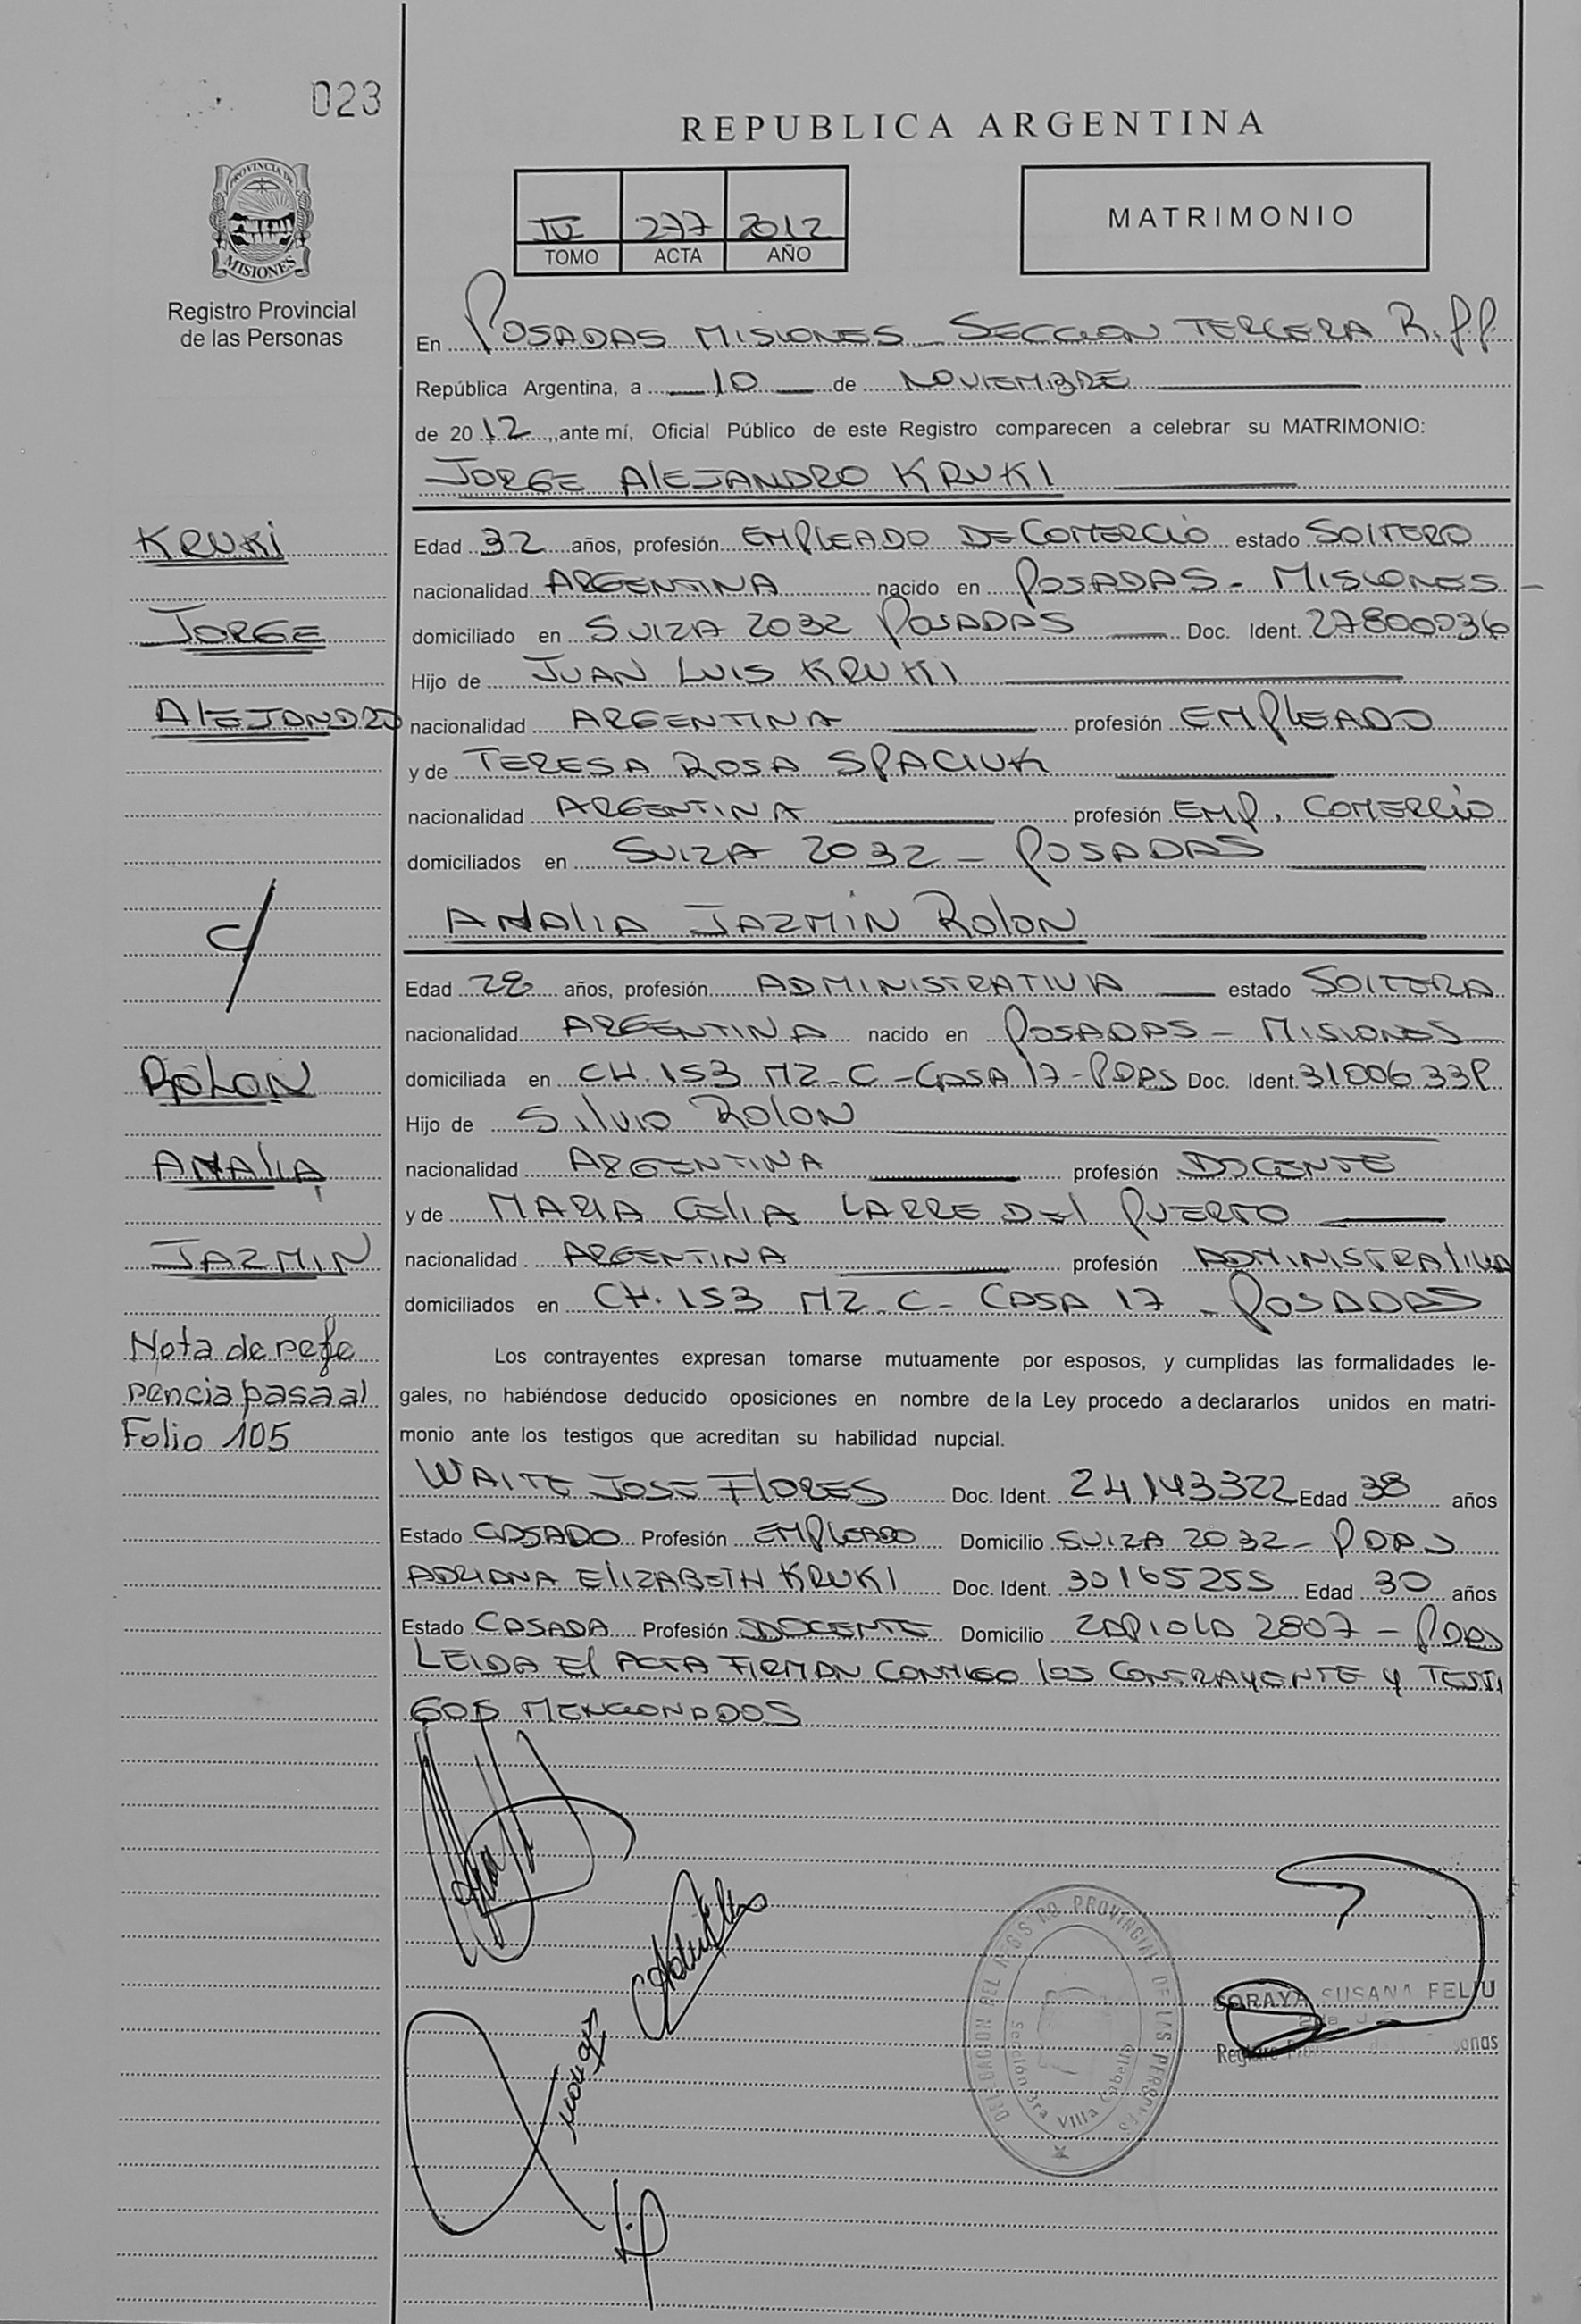 023
REPUBLICA ARGENTINA
PROVINCIA DE
MISIONES
Registro Provincial
de las Personas
IV 277 2012
TOMO ACTA AÑO
MATRIMONIO
En POSADAS MISIONES - SECCION TERCERA R.P.P.
República Argentina, a 10 de NOVIEMBRE
de 2012, ante mí, Oficial Público de este Registro comparecen a celebrar su MATRIMONIO:
JORGE ALEJANDRO KRUKI
KRUKI
Edad 32 años, profesión EMPLEADO DE COMERCIO estado SOLTERO
nacionalidad ARGENTINA nacido en POSADAS - MISIONES -
JORGE
domiciliado en SUIZA 2032 POSADAS Doc. Ident. 27800036
Hijo de JUAN LUIS KRUKI
ALEJANDRO
nacionalidad ARGENTINA profesión EMPLEADO
y de TERESA ROSA SPACIUK
nacionalidad ARGENTINA profesión EMP. COMERCIO
domiciliados en SUIZA 2032 - POSADAS
C/
ANALIA JAZMIN ROLON
Edad 28 años, profesión ADMINISTRATIVA estado SOLTERA
nacionalidad ARGENTINA nacido en POSADAS - MISIONES
ROLON
domiciliada en CH. 153 MZ - C - CASA 17 - PDAS Doc. Ident.
Hijo de SILVIO ROLON
ANALIA
nacionalidad ARGENTINA profesión DOCENTE
y de MARIA CELIA LARRE DEL PUERTO
JAZMIN
nacionalidad ARGENTINA profesión ADMINISTRATIVA
domiciliados en CH. 153 MZ - C - CASA 17 - POSADAS
Nota de refe
rencia pasa al
Folio 105
Los contrayentes expresan tomarse mutuamente por esposos, y cumplidas las formalidades le-
gales, no habiéndose deducido oposiciones en nombre de la Ley procedo a declararlos unidos en matri-
monio ante los testigos que acreditan su habilidad nupcial.
WAITE JOSE FLORES Doc. Ident. 24143322 Edad 38 años
Estado CASADO Profesión EMPLEADO Domicilio SUIZA 2032 - PDAS
ADRIANA ELIZABETH KRUKI Doc. Ident. 30165255 Edad 30 años
Estado CASADA Profesión DOCENTE Domicilio ZAPIOLA 2807 - PDAS
LEIDA EL ACTA FIRMAN CONMIGO LOS CONTRAYENTE Y TESTI
GOS MENCIONADOS
DELEGACION DEL REGISTRO PROVINCIAL DE LAS PERSONAS
Sección 3ra Villa Cabello
SORAYA SUSANA FELIU